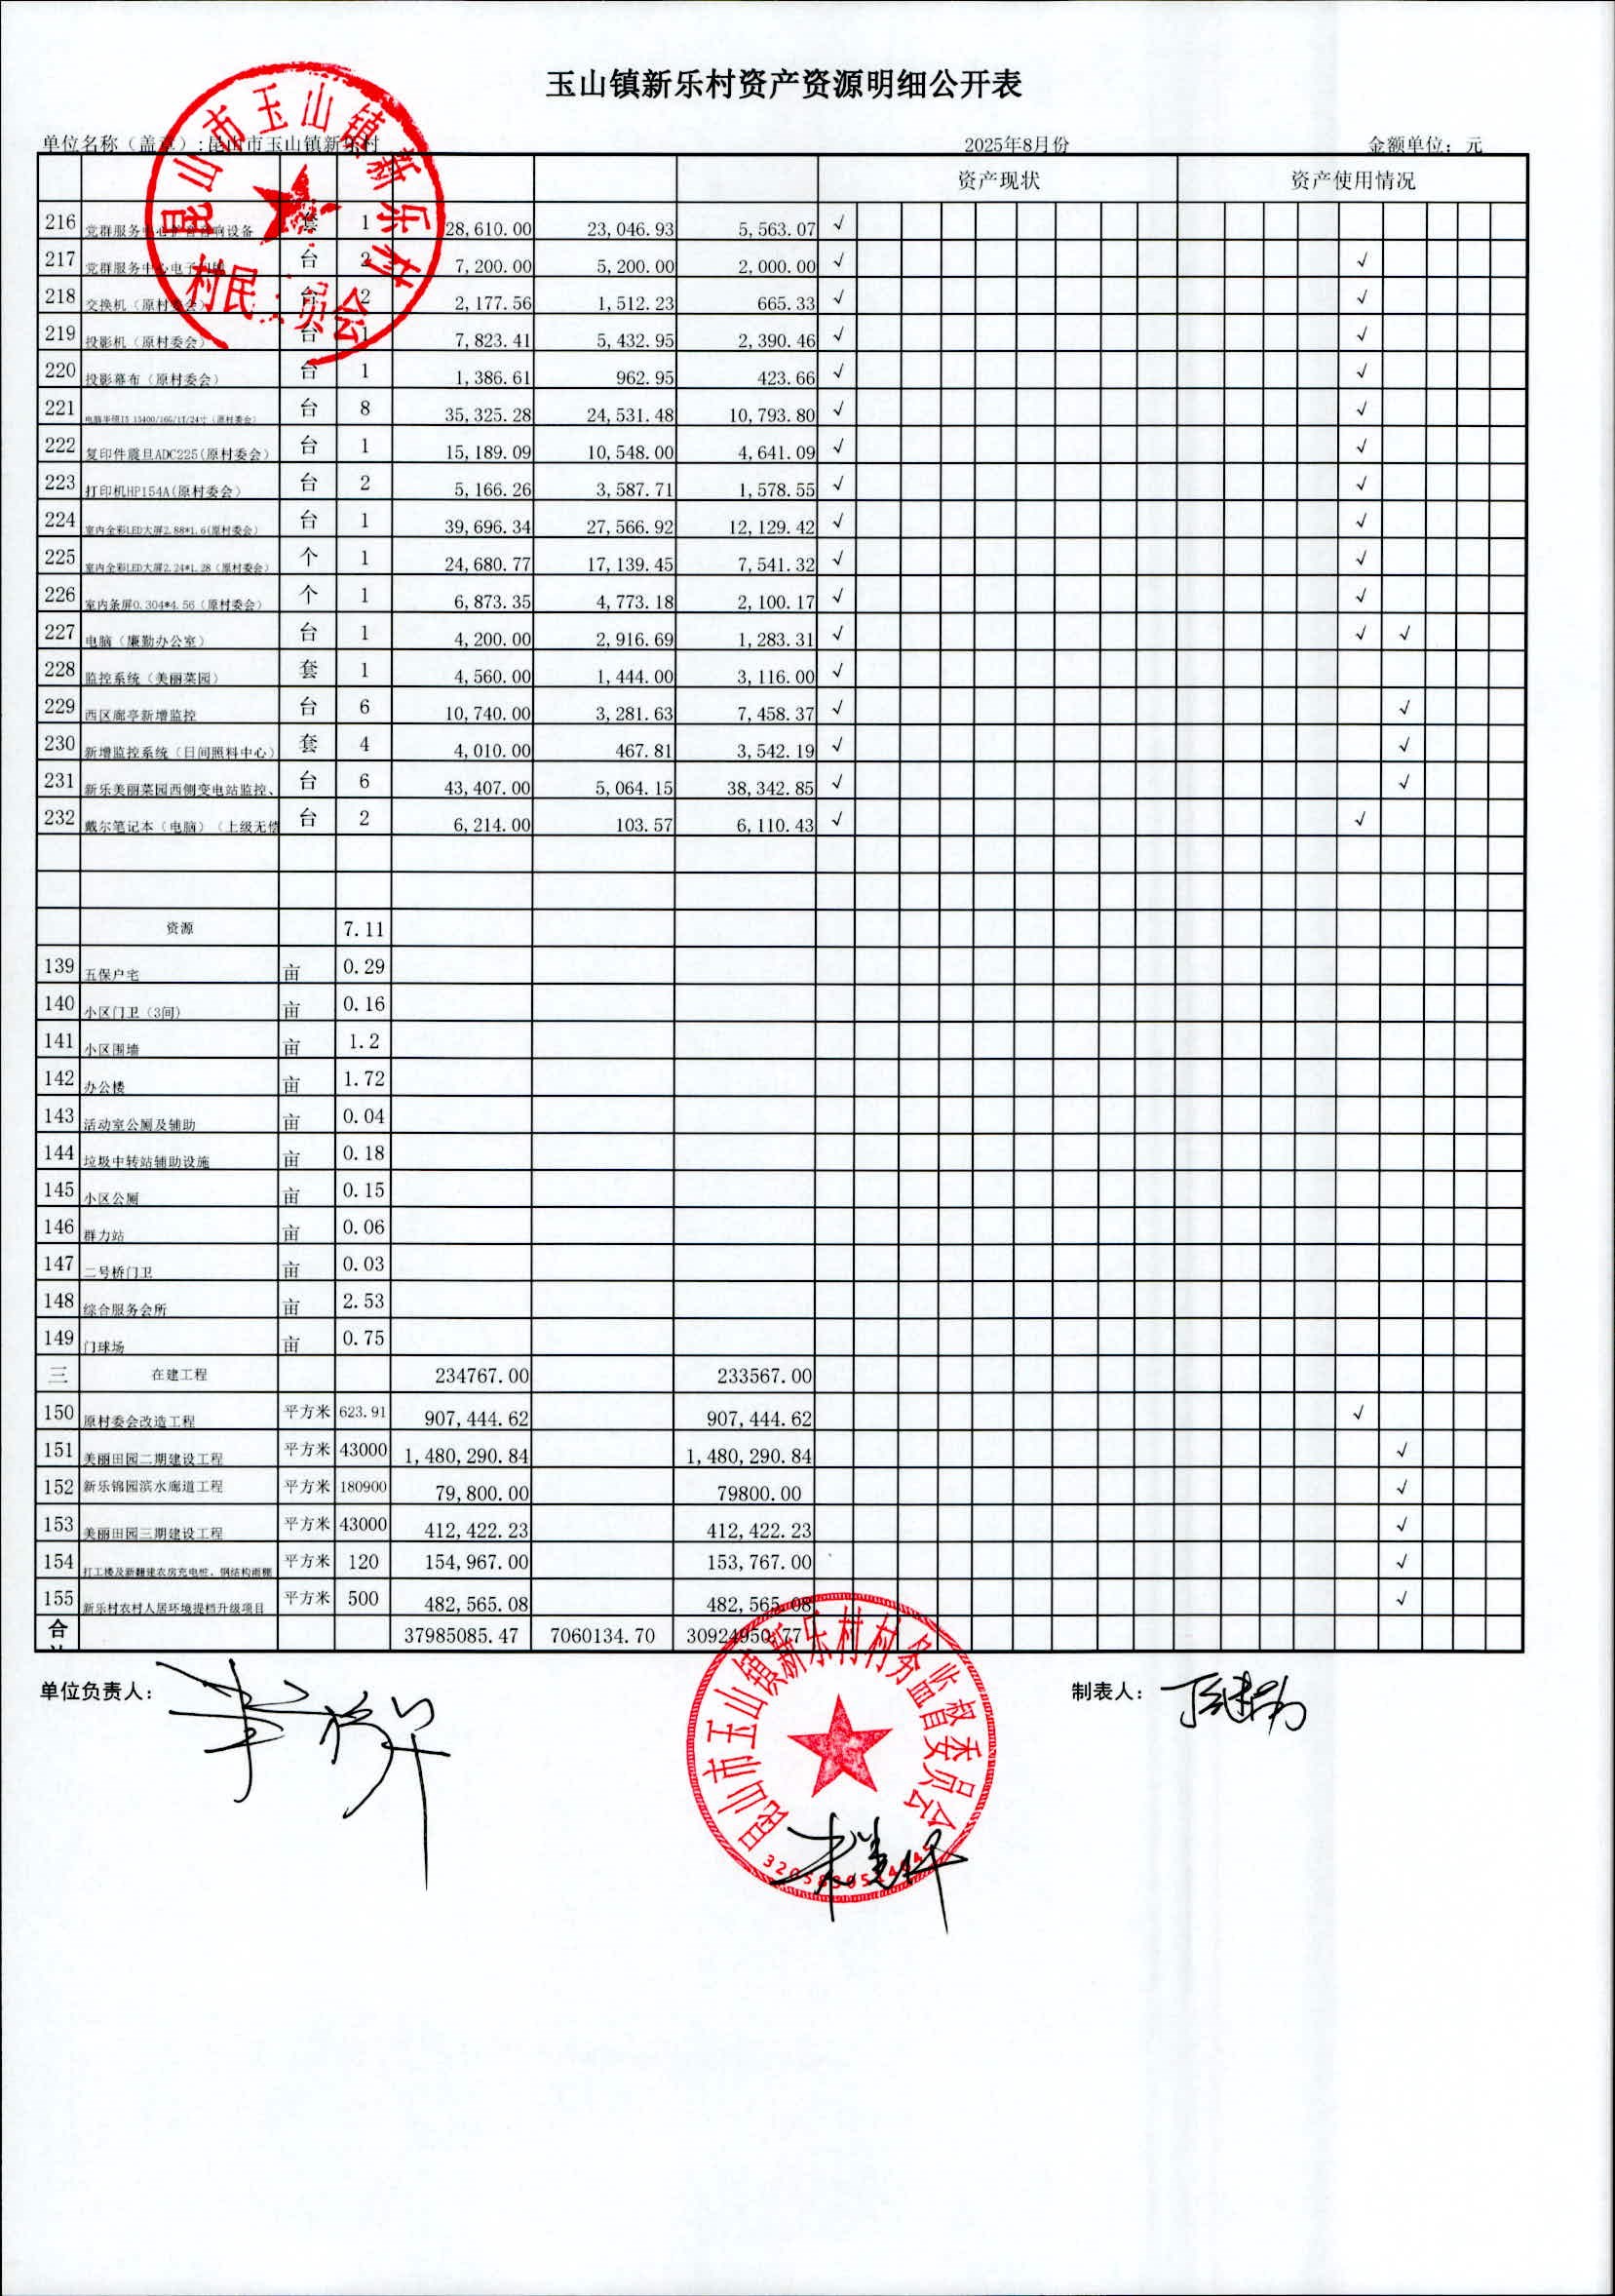 玉山镇新乐村资产资源明细公开表
单位名称（盖章）:昆山市玉山镇新乐村 2025年8月份 金额单位：元
资产现状 资产使用情况
216 党群服务中心扩音音响设备 套 1 28,610.00 23,046.93 5,563.07 √
217 党群服务中心电子 台 2 7,200.00 5,200.00 2,000.00 √ √
218 交换机（原村委会） 台 2 2,177.56 1,512.23 665.33 √ √
219 投影机（原村委会） 台 1 7,823.41 5,432.95 2,390.46 √ √
220 投影幕布（原村委会） 台 1 1,386.61 962.95 423.66 √ √
221 电脑华硕I5 13400/16G/1T/24寸（原村委会） 台 8 35,325.28 24,531.48 10,793.80 √ √
222 复印件震旦ADC225(原村委会） 台 1 15,189.09 10,548.00 4,641.09 √ √
223 打印机HP154A(原村委会） 台 2 5,166.26 3,587.71 1,578.55 √ √
224 室内全彩LED大屏2.88*1.6(原村委会） 台 1 39,696.34 27,566.92 12,129.42 √ √
225 室内全彩LED大屏2.24*1.28（原村委会） 个 1 24,680.77 17,139.45 7,541.32 √ √
226 室内条屏0.304*4.56（原村委会） 个 1 6,873.35 4,773.18 2,100.17 √ √
227 电脑（廉勤办公室） 台 1 4,200.00 2,916.69 1,283.31 √ √ √
228 监控系统（美丽菜园） 套 1 4,560.00 1,444.00 3,116.00 √
229 西区廊亭新增监控 台 6 10,740.00 3,281.63 7,458.37 √ √
230 新增监控系统（日间照料中心） 套 4 4,010.00 467.81 3,542.19 √ √
231 新乐美丽菜园西侧变电站监控、 台 6 43,407.00 5,064.15 38,342.85 √ √
232 戴尔笔记本（电脑）（上级无偿 台 2 6,214.00 103.57 6,110.43 √ √
资源 7.11
139 五保户宅 亩 0.29
140 小区门卫（3间） 亩 0.16
141 小区围墙 亩 1.2
142 办公楼 亩 1.72
143 活动室公厕及辅助 亩 0.04
144 垃圾中转站辅助设施 亩 0.18
145 小区公厕 亩 0.15
146 群力站 亩 0.06
147 二号桥门卫 亩 0.03
148 综合服务会所 亩 2.53
149 门球场 亩 0.75
三 在建工程 234767.00 233567.00
150 原村委会改造工程 平方米 623.91 907,444.62 907,444.62 √
151 美丽田园二期建设工程 平方米 43000 1,480,290.84 1,480,290.84 √
152 新乐锦园滨水廊道工程 平方米 180900 79,800.00 79800.00 √
153 美丽田园三期建设工程 平方米 43000 412,422.23 412,422.23 √
154 打工楼及新翻建农房充电桩、钢结构雨棚 平方米 120 154,967.00 153,767.00 √
155 新乐村农村人居环境提档升级项目 平方米 500 482,565.08 482,565.08 √
合 37985085.47 7060134.70 30924950.77
单位负责人： 制表人：
昆山市玉山镇新乐村
村民委员会
昆山市玉山镇新乐村村务监督委员会